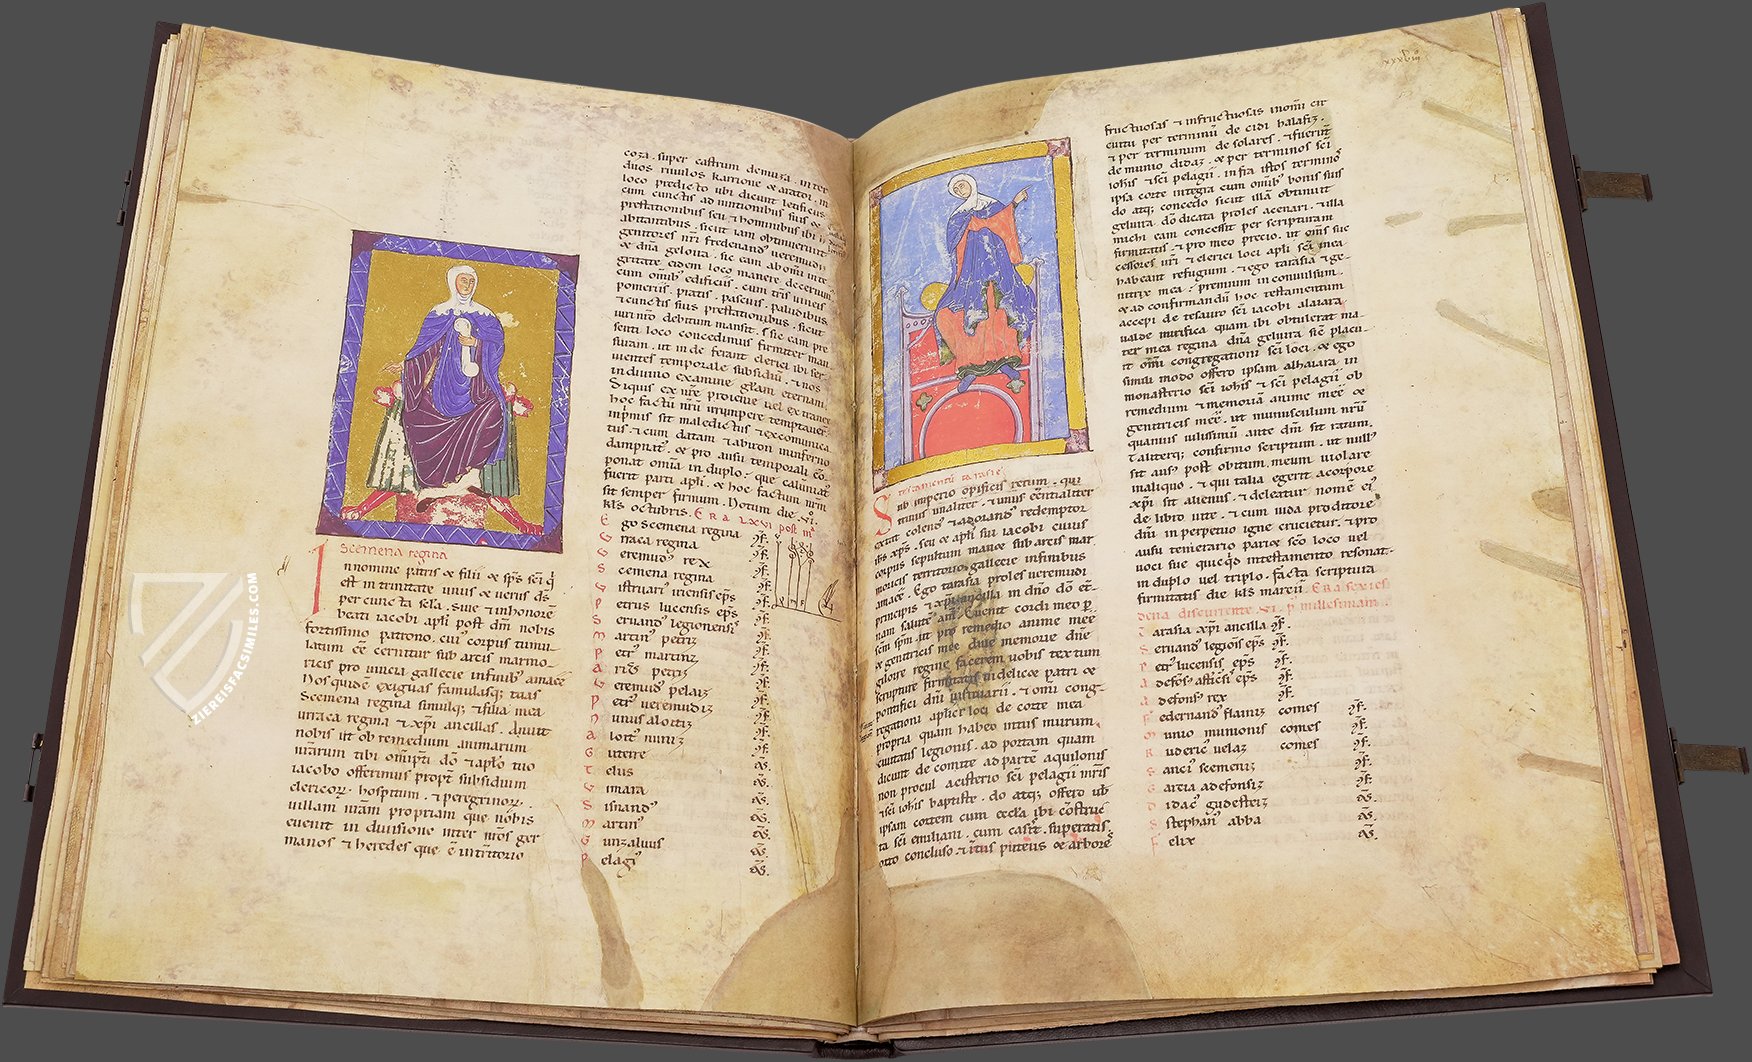 Scemena regina
In nomine patris & filii & sp̄s sc̄i q̄
est in trinitate unus & uerus d̄s
per cuncta sc̄la. Siue & in honorē
beati iacobi apl̄i post dm̄ nobis
fortissimo patrono. cui' corpus tumu-
latum eē cernitur sub artis marmo-
ricis pro uincia gallecie in finib' amaee
Nos quidē exiguas famulasq; tuas
Scemena regina simulq; & filia mea
urraca regina & xp̄i ancillas. Annuit
nobis ut ob remedium animarum
nr̄arum tibi om̄ipt̄i dō & apl̄o tuo
iacobo offerimus propt̄ subsidium
clericor. hospitum. & peregrinor.
uillam nr̄am propriam que nobis
euenit in diuisione inter nr̄os ger
manos & heredes que ē in t̄ritorio
coza. super castrum demuza. inter
duos riuulos karrione & arator. in
loco predicto ubi dicunt letificus
cum cunctis ad iuntionibus suis &
prestationibus seu & hominibus ibi
abitantibus. sicut iam obtinuerunt
genitores nr̄i fredenand' ueremudi
& dn̄a geloira. sic eam ab om̄i inte
gritate eidem loco manere decernim'
cum omib' edificiis. cum tris uineis
pomeriis. pratis. pascuis. paludibus
& cunctis suis prestationibus. sicut
iuri nr̄o debitum mansit. Sic eam pre
senti loco concedimus firmiter man
suram. ut in de ferant clerici ibi ser
uientes temporale subsidiū. & nos
in diuino examine gr̄am eternam.
Siquis ex nr̄e progenie uel extranee
hoc factū nr̄m irrumpere temptauer̄
inprimis sit maledictus & excomunica
tus. & cum datam & abiron in inferno
dampnat'. & pro ausu temporali cō
ponat om̄ia in duplo. que calūniat'
fuerit parti apl̄i. & hoc factum nr̄m
sit semper firmum. Notum die. xi.
kl̄s octubris. ERA LXVI post m̄
Ego scemena regina cf.
Urraca regina cf.
Ueremud' rex cf.
Scemena regina cf.
Uistruari' iriensis ep̄s cf.
Petrus lucensis ep̄s cf.
Seruand' legionensi' cf.
Martin' petriz cf.
Petr' martiniz cf.
Ariās petriz cf.
Gueremud' pelaiz cf.
Petr' ueremudiz cf.
Nunus aloitiz cf.
Alott' nuniz cf.
Guterre ts.
Telius ts.
Uimara ts.
Sisnand' ts.
Martin' ts.
Gunzaluus ts.
Pelagi' ts.
xxxviii
Testamentū tarasie
Sub imperio opificis rerum. qui
trinus unaliter. & unus eēntialiter
extat colens & adorand' redemptor
ih̄s xp̄s. seu & apl̄i sui iacobi cuius
corpus sepultum manet sub arcis mar
moricis territorio gallecie in finibus
amaee. Ego tarasia proles ueremudi
principis & xp̄i ancilla in dn̄o dō et̄-
nam salutē am̄. Euenit cordi meo p̄
sem̄ sp̄m. ut pro remedio anime mee
& genitricis mee diue memorie dn̄e
giloire regine facerem uobis textum
scripture firmitatis in delicae patri &
pontifici dn̄i uistruarii. & omi cong-
regationi aplice loci de corte mea
propria quam habeo intus murum
ciuitatis legionis. ad portam quam
dicunt de comite ad partē aquilonis
non procul acisterio sc̄i pelagii mr̄is
& sc̄i iohis baptiste. do atq; offero ub̄
ipsam cortem cum eccl̄a ibi cōstruc
ta sc̄i emiliani. cum casis. superatis.
orto concluso & intus puteus & arborē
fructuosas & infructuosas in om̄i cir
cuitu per terminū de cidi halafiz.
& per terminum de solares. & fuerit
de munio didaz. & per terminos sc̄i
iohis & sc̄i pelagii. infra istos terminō
ipsa corte integra cum omib' bonis suis
do atq; concedo sicut illā obtinuit
geluira. dō dicata proles acenari. & illa
michi eam concessit per scripturam
firmitatis. & pro meo precio. ut om̄s suc
cessores ur̄i & clerici loci apl̄i sc̄i mea
habeant refugium. & ego tarasia & ge-
nitrix mea premium in conuulsum.
& ad confirmandū hoc testamentum
accepi de tesauro sc̄i iacobi alaiara
ualde mirifica quam ibi obtulerat ma-
ter mea regina dn̄a geluira sic̄ placu-
it omi congregationi sc̄i loci. & ego
simili modo offero ipsam alhaiara in
monasterio sc̄i iohis & sc̄i pelagii ob
remedium & memoriā anime meē &
genitricis meē. ut munusculum nr̄ū
quamuis uilissimū ante dm̄ sit ratum.
Taliterq; confirmo scriptum. ut null'
sit aus' post obitum meum uiolare
maliquo. & qui talia egerit acorpore
xp̄i sit alienus. & deleatur nomē ei'
de libro uite. & cum iuda proditore
dn̄i in perpetuo igne crucietur. & pro
ausu temerario pariet sc̄o loco uel
uoci sue quicq̄d in testamento resonat.
in duplo uel triplo. facta scriptura
firmitatis die kl̄s marcii. ERA sexies
dena discurrente. VI. p' millesimam.
Tarasia xp̄i ancilla cf.
Seruand' legiōis ep̄s cf.
Petr' lucensis ep̄s cf.
Adefons' asticēsi ep̄s cf.
Adefonsi' rex cf.
Federnand' flainiz comes cf.
Munio munionis comes cf.
Ruderic' uelaz comes cf.
Sanci' scemeniz cf.
Garcia adefonsiz cf.
Didac' gudesteiz ts.
Stephan' abba ts.
Felix ts.
ZIEREISFACSIMILES.COM